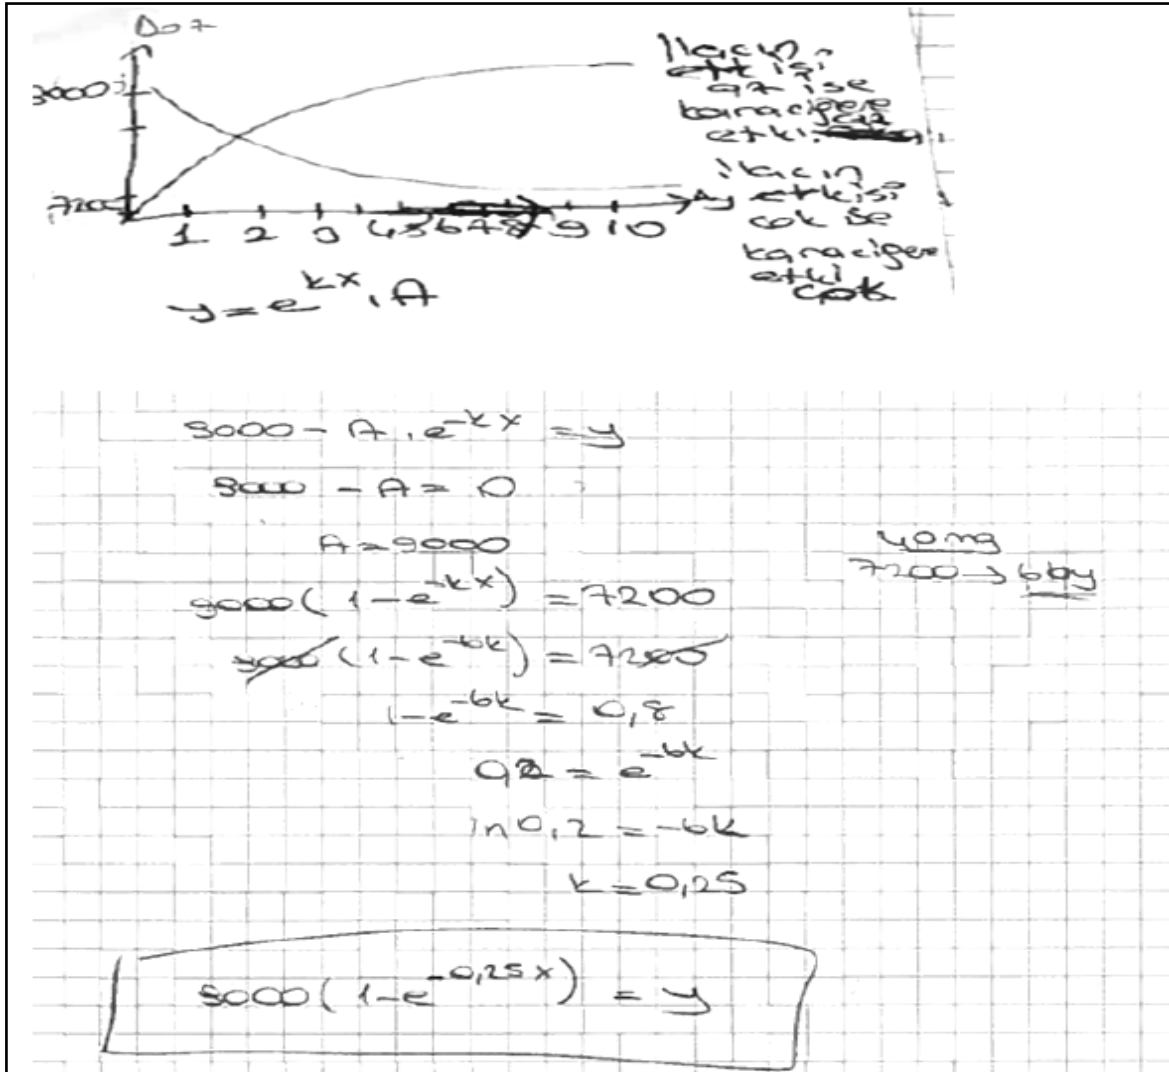 Doz
9000
7200
1 2 3 4 5 6 7 8 9 10 Ay
y = e^{kx} . A
İlacın
etkisi
az ise
karaciğere
etki az
ilacın
etkisi
çok ise
karaciğere
etki
çok
9000 - A . e^{-kx} = y
9000 - A = 0
A = 9000
9000 ( 1 - e^{-kx} ) = 7200
9000 ( 1 - e^{-6k} ) = 7200
1 - e^{-6k} = 0,8
0,2 = e^{-6k}
ln 0,2 = -6k
k = 0,25
9000 ( 1 - e^{-0,25x} ) = y
40 mg
7200 → 6 ay